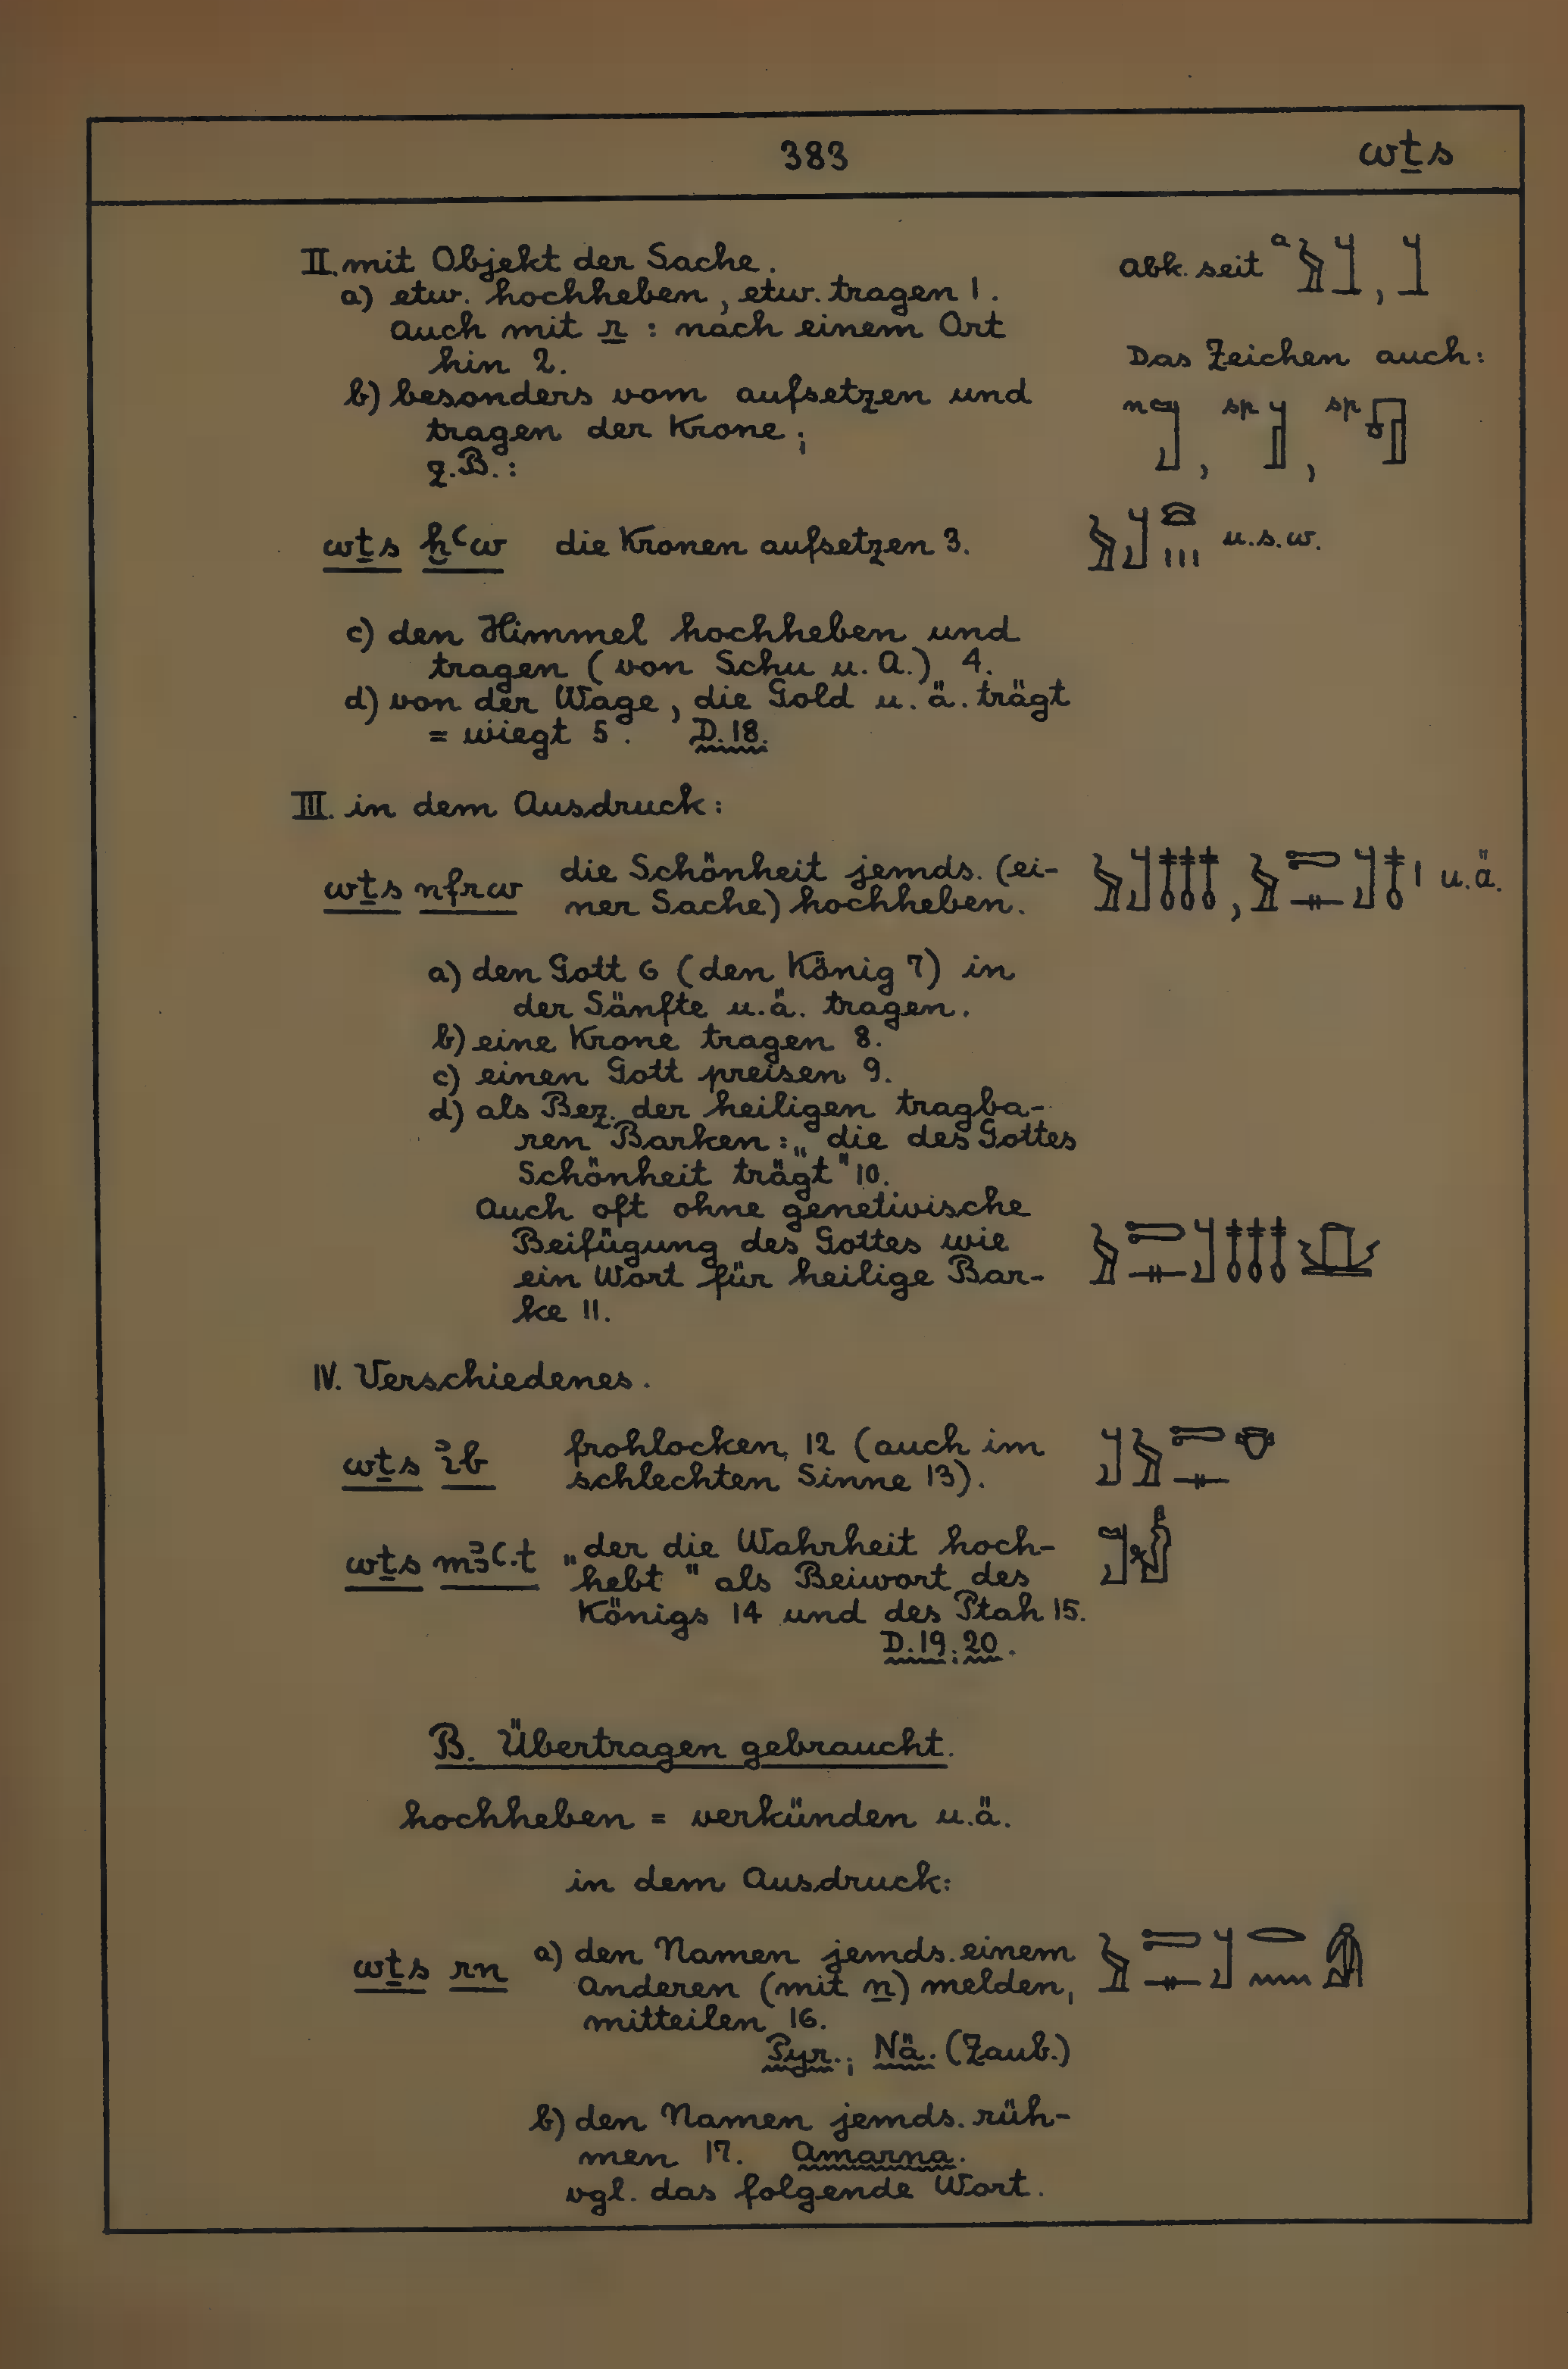 383 wṯs
II. mit Objekt der Sache.
a) etw. hochheben, etw. tragen 1.
auch mit r : nach einem Ort
hin 2.
b) besonders vom aufsetzen und
tragen der Krone;
z.B.:
abk. seit a
Das Zeichen auch:
n , sp , sp
wṯs ḫꜥw die Kronen aufsetzen 3. u.s.w.
c) den Himmel hochheben und
tragen (von Schu u. A.) 4.
d) von der Wage, die Gold u. ä. trägt
= wiegt 5. D. 18.
III. in dem Ausdruck:
wṯs nfrw die Schönheit jemds. (ei-
ner Sache) hochheben.
u.ä.
a) den Gott 6 (den König 7) in
der Sänfte u.ä. tragen.
b) eine Krone tragen 8.
c) einen Gott preisen 9.
d) als Bez. der heiligen tragba-
ren Barken: „die des Gottes
Schönheit trägt" 10.
Auch oft ohne genetivische
Beifügung des Gottes wie
ein Wort für heilige Bar-
ke 11.
IV. Verschiedenes.
wṯs ꞽb frohlocken, 12 (auch im
schlechten Sinne 13).
wṯs mꜣꜥ.t „der die Wahrheit hoch-
hebt" als Beiwort des
Königs 14 und des Ptah 15.
D. 19; 20.
B. Übertragen gebraucht.
hochheben = verkünden u.ä.
in dem Ausdruck:
wṯs rn a) den Namen jemds. einem
Anderen (mit n) melden,
mitteilen 16.
Pyr.; Nä. (Zaub.)
b) den Namen jemds. rüh-
men 17. Amarna.
vgl. das folgende Wort.